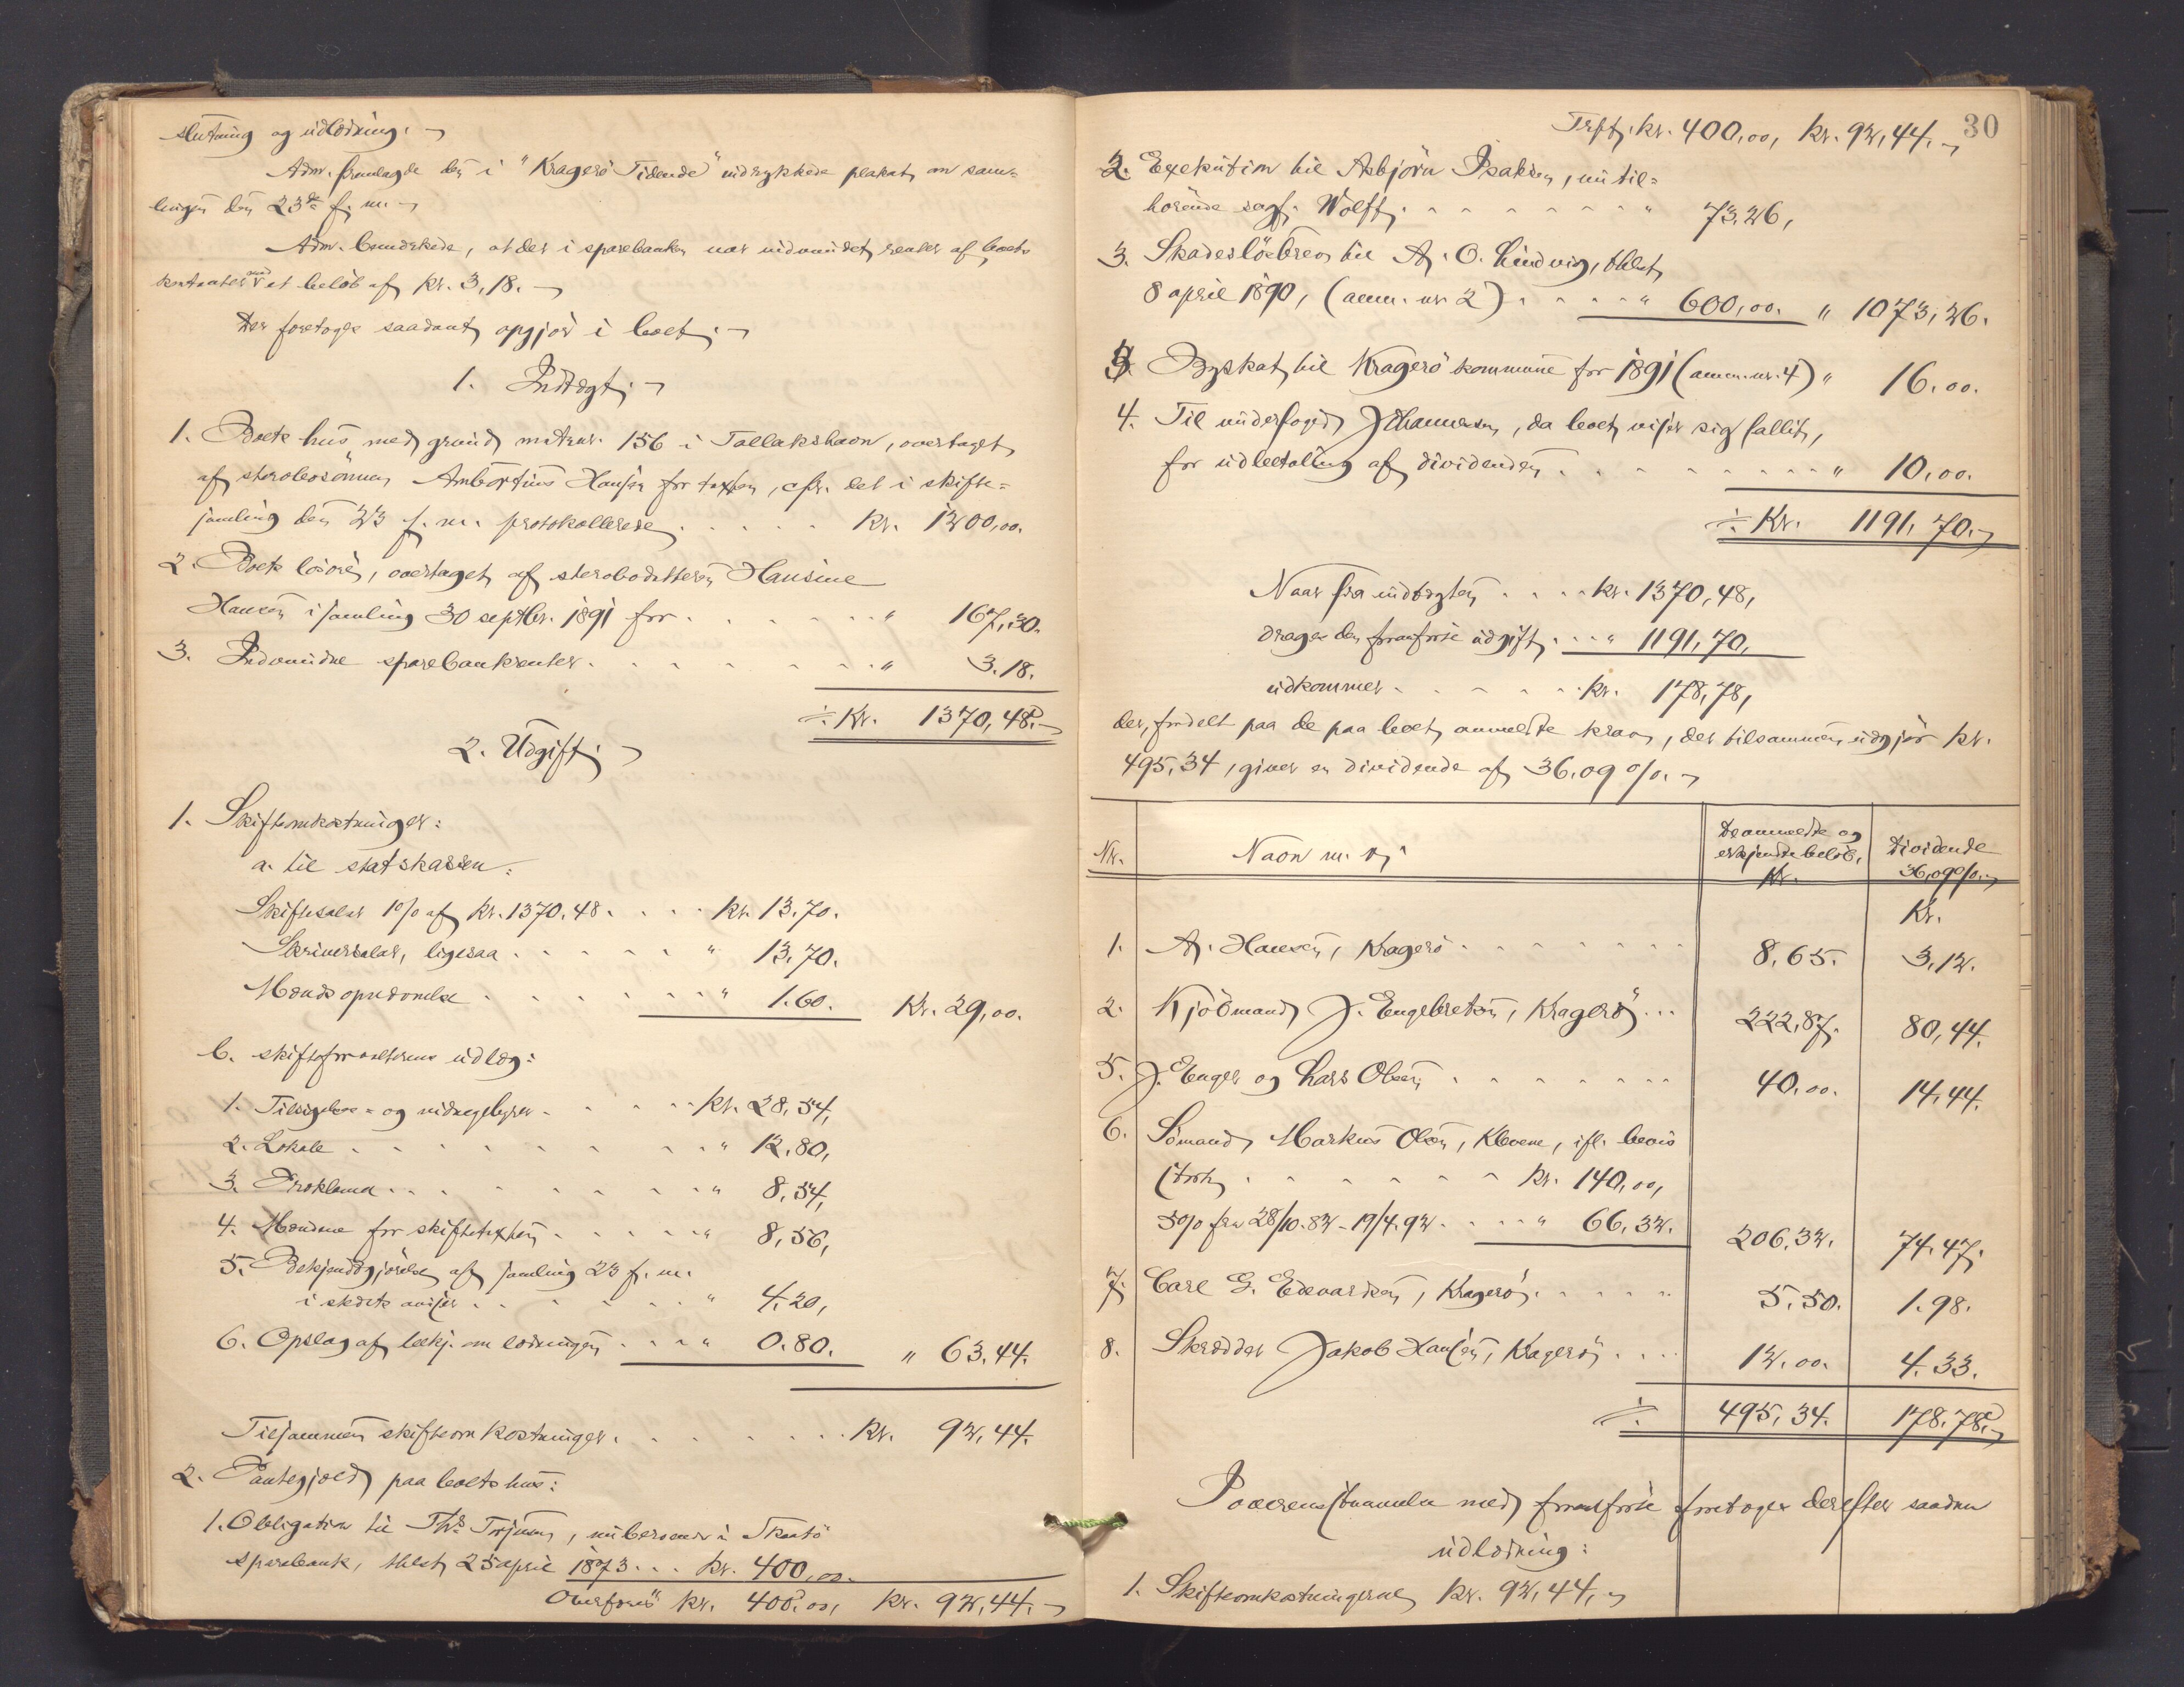 slutning og udlodning.
Adm. fremlagde den i "Kragerø Tidende" indrykkede plakat om sam-
lingen den 23de f. m.
Adm. bemærkede, at der i sparebanken var indvundet renter af boets
kontanter med et beløb af kr. 3,18.
Der foretoges saadant opgjør i boet:
1. Indtægt:
1. Boets hus med grund matrnr. 156 i Tallakshavn, overtaget
af stervbosønnen Ambortius Hansen for taxten, cfr. det i skifte-
samling den 23 f. m. protokollerede . . . . . kr. 1200,00.
2. Boets løsøre, overtaget af stervbodatteren Hansine
Hansen i samling 30 septbr. 1891 for . . . . . . " 167,30.
3. Indvundne sparebankrenter . . . . . . . . " 3.18.
÷ Kr. 1370,48.
2. Udgift:
1. Skifteomkostninger:
a. til statskassen:
Skiftesalær 1% af kr. 1370.48 . . . . kr. 13.70.
Skriversalær, ligesaa . . . . . . " 13.70.
Mænds opnævnelse . . . . . . . " 1.60. Kr. 29,00.
b. skifteforvalterens udlæg:
1. Tilsigelses- og vidnegebyrer . . . . . kr. 28,54,
2. Lokale . . . . . . . . . " 12,80,
3. Proklama . . . . . . . . . " 8,54,
4. Mændene for skiftetaxten . . . . . " 8,56,
5. Bekjendtgjørelse af samling 23 f. m.
i stedets aviser . . . . . . " 4.20,
6. Opslag af bekj. om lodningen . . . " 0.80. " 63.44.
Tilsammen skifteomkostninger . . . . . . . kr. 92,44.
2. Pantegjæld paa boets hus:
1. Obligation til Ths. , nu beroende i Skaatø
sparebank, thlst 25 april 1873 . . . kr. 400,00.
Overføres kr. 400,00, kr. 92,44.
30
Trft. kr. 400,00, kr. 92,44.
2. Exekution til Asbjørn Isaksen, nu til-
hørende sagf. Wolff . . . . . . . . " 73,26,
3. Skadesløsbrev til A. O. Lindvig, thlst
8 april 1890, (anm. nr. 2) . . . . . " 600,00. " 1073,26.
3. Byskat til Kragerø kommune for 1891 (anm. nr. 4) " 16.00.
4. Til underfoged Johannesen, da boet viser sig fallit,
for udbetaling af dividenden . . . . . . . . . " 10,00.
÷ Kr. 1191,70.
Naar fra indtægten . . . . kr. 1370,48,
drages den foranførte udgift . . . " 1191,70,
udkommer . . . . . . kr. 178,78,
der, fordelt paa de paa boet anmeldte krav, der tilsammen udgjør kr.
495,34, giver en dividende af 36.09 %.
Nr. Navn m. v. De anmeldte og erkjendte beløb. Kr. Dividende 36,09%.
Kr.
1. A. Hansen, Kragerø . . . . . . . 8,65. 3,12.
2. Kjøbmand J. Engebretsen, Kragerø . . . 222,87. 80,44.
5. J. Enger og Lars Olsen . . . . . . . 40.00. 14.44.
6. Sømand Markus Olsen, Klevene, ifl. bevis
. . . . . . kr. 140,00,
5% fra 28/10.82 - 19/4.92 . . . . " 66,32. 206.32. 74.47.
7. Carl G. Edvardsen, Kragerø . . . . . 5.50. 1.98.
8. Skrædder Jakob Hansen, Kragerø . . . . 12.00. 4.33.
÷ 495,34. 178.78.
I overensstemmelse med foranførte foretoges derefter saadan
udlodning:
1. Skifteomkostningerne kr. 92,44,